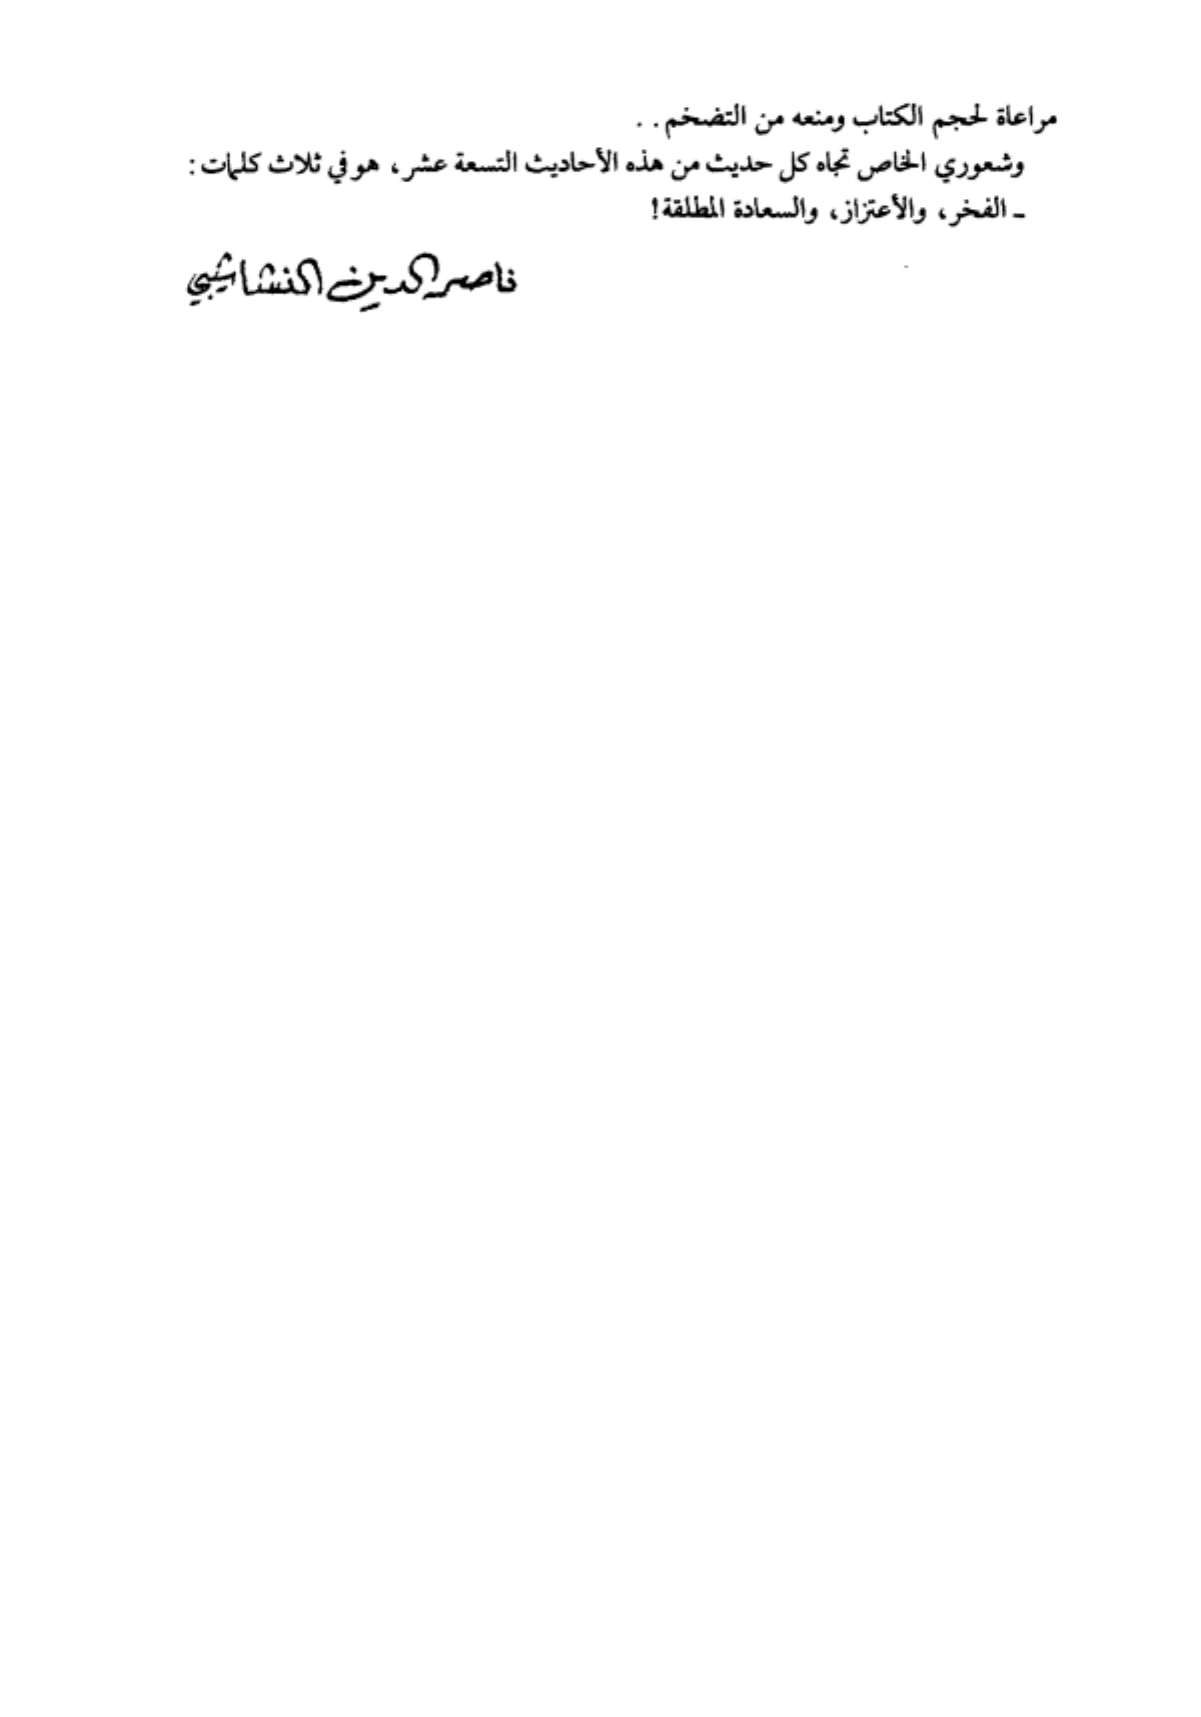 مراعاة لحجم الكتاب ومنعه من التضخم . .
وشعوري الخاص تجاه كل حديث من هذه الأحاديث التسعة عشر ، هو في ثلاث كلمات :
ـ الفخر ، والأعتزاز ، والسعادة المطلقة !
ناصر الدين النشاشيبي